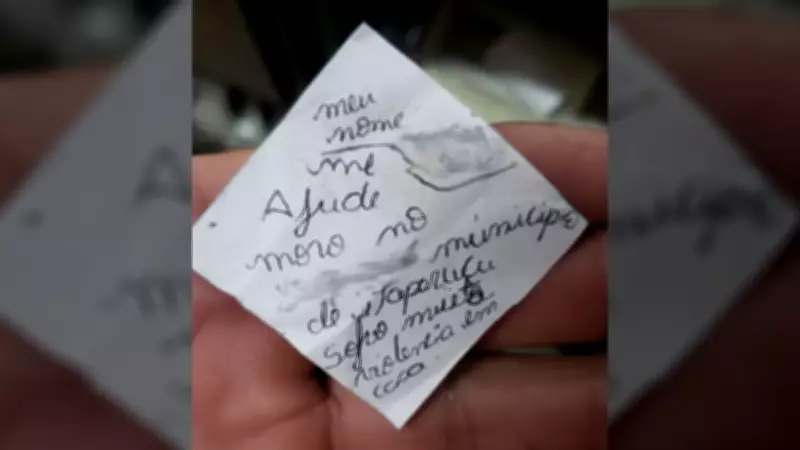 meu
nome
me
Ajude
moro no
municipio
de itaporucu
sofro muito
violencia em
casa